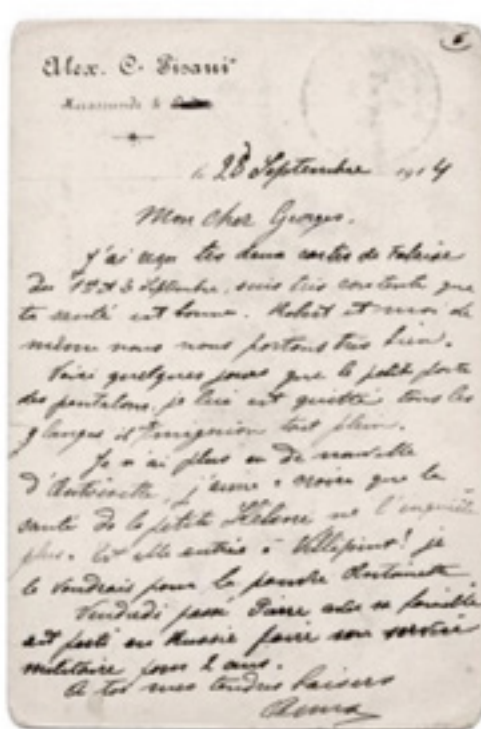 6
Alex. C. Pisani
le 28 Septembre 1914
Mon cher Georges.
J'ai reçu tes deux cartes de Falaise
du 1er & 3 Septembre, suis très contente que
ta santé est bonne. Robert et moi de
même nous nous portons très bien.
Voici quelques jours que le petit porte
des pantalons, je lui ai quitté tous les
langes il est mignon tout plein.
Je n'ai plus eu de nouvelle
d'Antoinette, j'aime à croire que la
santé de la petite Hélène ne l'inquiète
plus. Est elle entrée à Villepint! je
le voudrais pour la pauvre Antoinette
Vendredi passé Pierre avec sa famille
est parti en Russie faire son service
militaire pour 2 ans.
A toi mes tendres baisers